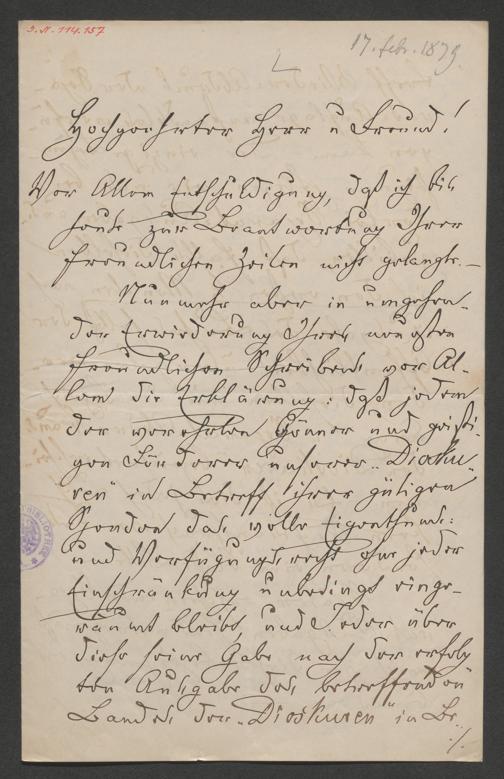 I.N. 114.157
17. febr. 1879.
Hochgeehrter Herr u Freund!
Vor Allem Entschuldigung, daß ich bis
heute zur Beantwortung Ihrer
freundlichen Zeilen nicht gelangte. —
Nunmehr aber in umgehen-
der Erwiederung Ihres neuesten
freundlichen Schreibens vor Al-
lem die Erklärung: daß jedem
der verehrten Gönner und geisti-
gen Förderer unserer „Diosku-
ren" in Betreff ihrer gütigen
Spenden das volle Eigenthums-
und Verfügungsrecht ohne jeder
Einschränkung unbedingt einge-
räumt bleibt, und Jeder über
diese seine Gabe nach der erfolg-
ten Ausgabe des betreffenden
Bandes der „Dioskuren" in Be-
./.